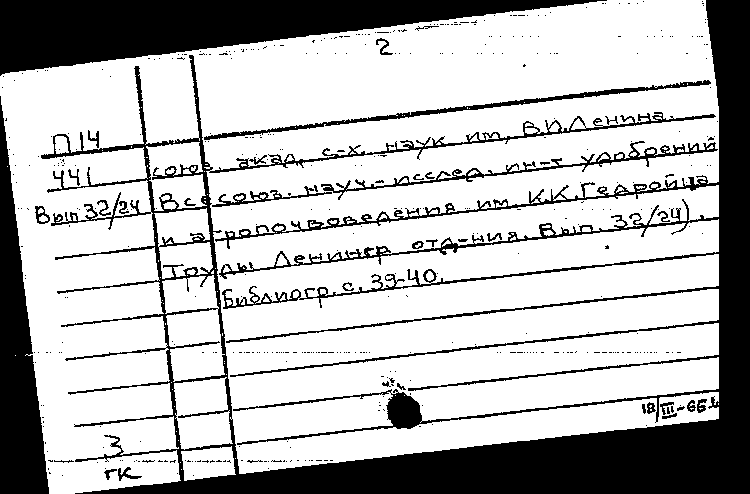 2
П14
441
Вып 32/24
союз. акад. с-х. наук им. В.И.Ленина.
Всесоюз. науч.-исслед. ин-т удобрений
и агропочвоведения им. К.К.Гедройца
Труды Ленингр отд-ния. Вып. 32/24).
Библиогр. с. 39-40.
18/III-65г.
3
ГК